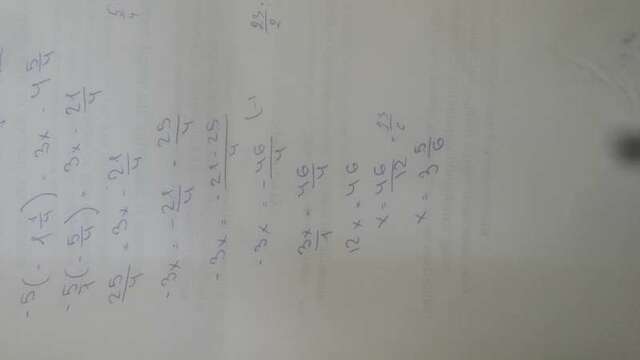 -5(-1 1/4) = 3x - 4 5/4
-5/1(-5/4) = 3x - 21/4
25/4 = 3x - 21/4
-3x = -21/4 - 25/4
-3x = -21-25/4
-3x = -46/4 (-1
3x/1 = 46/4
12x = 46
x = 46/12 = 23/6
x = 3 5/6
23/2